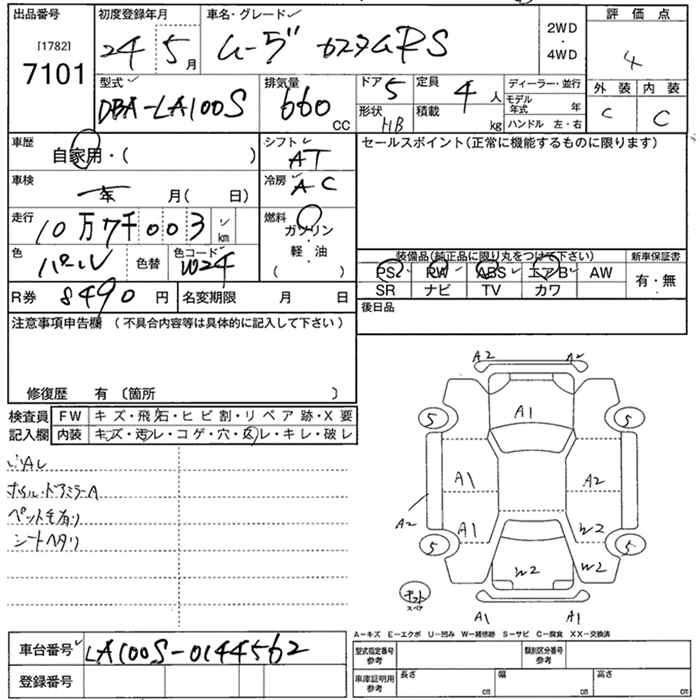 出品番号 初度登録年月 車名・グレード 評価点
[1782]
7101
24 5月
ムーヴ カスタムRS
2WD
・
4WD
4
型式 排気量 ドア 定員 ディーラー・並行 外装 内装
DBA-LA100S 660 CC
5 4人
モデル年式 年
形状 HB 積載 kg ハンドル 左・右
C C
車歴 自家用・( )
シフト AT
セールスポイント(正常に機能するものに限ります)
車検 年 月( 日)
冷房 AC
走行 10万7千003 km
燃料 ガソリン・軽・油 ( )
色 パール 色替 色コード W24
装備品(純正品に限り丸をつけて下さい) 新車保証書
PS RW ABS エアB AW 有・無
SR ナビ TV カワ
R券 8490円 名変期限 月 日
後日品
注意事項申告欄(不具合内容等は具体的に記入して下さい)
修復歴 有(箇所 )
検査員 FW キズ・飛石・ヒビ割・リペア跡・X要
記入欄 内装 キズ・汚レ・コゲ・穴・スレ・キレ・破レ
ホイル・ドアミラーA
ペット毛有り
シートヘタリ
A2 A2
A1
5 5
A1 A2
A2
A1 W2
5 5
W2 W2
スペア
A1 A1
A-キズ E-エクボ U-凹み W-補修跡 S-サビ C-腐食 XX-交換済
車台番号 LA100S-0144562
型式指定番号 参考 類別区分番号 参考
登録番号
車庫証明用 参考 長さ cm 幅 cm 高さ cm